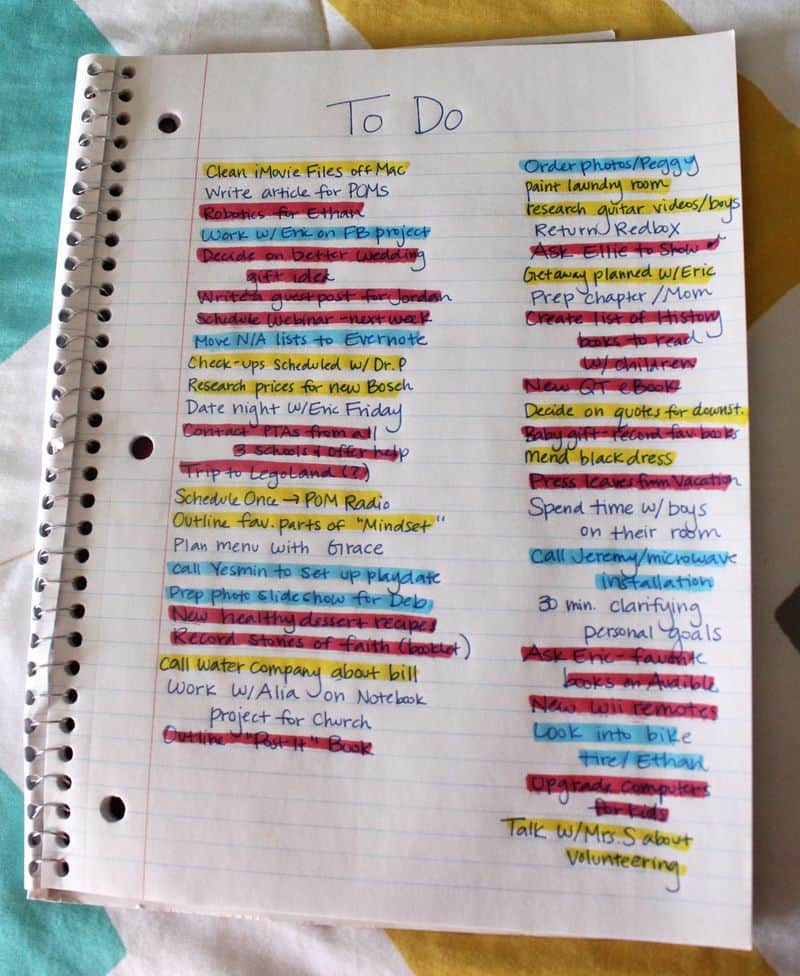 To Do
Clean iMovie Files off Mac
Write article for POMs
Robotics for Ethan
Work w/Eric on FB project
Decide on better wedding
gift idea
Write a guest post for Jordan
Schedule Webinar - next week
Move N/A lists to Evernote
Check-ups scheduled w/ Dr. P
Research prices for new Bosch
Date night w/Eric Friday
Contact PTAs from all
3 schools & offer help
Trip to Legoland (?)
Schedule Once → POM Radio
Outline fav. parts of "Mindset"
Plan menu with Grace
Call Yesmin to set up playdate
Prep photo slideshow for Deb
New healthy dessert recipes
Record stories of faith (booklet)
Call water company about bill
Work w/Alia on Notebook
project for Church
Outline "Post-It" Book
Order photos/Peggy
paint laundry room
research guitar videos/boys
Return Redbox
Ask Ellie to Show
Getaway planned w/Eric
Prep chapter/Mom
Create list of History
books to read
w/ children
New QT eBook
Decide on quotes for downst.
Baby gift-record fav. books
mend black dress
Press leaves from Vacation
Spend time w/ boys
on their room
Call Jeremy/microwave
installation
30 min. clarifying
personal goals
Ask Eric - favorite
books on Audible
New wii remotes
Look into bike
tire/ Ethan
Upgrade computers
for kids
Talk w/Mrs. S about
Volunteering